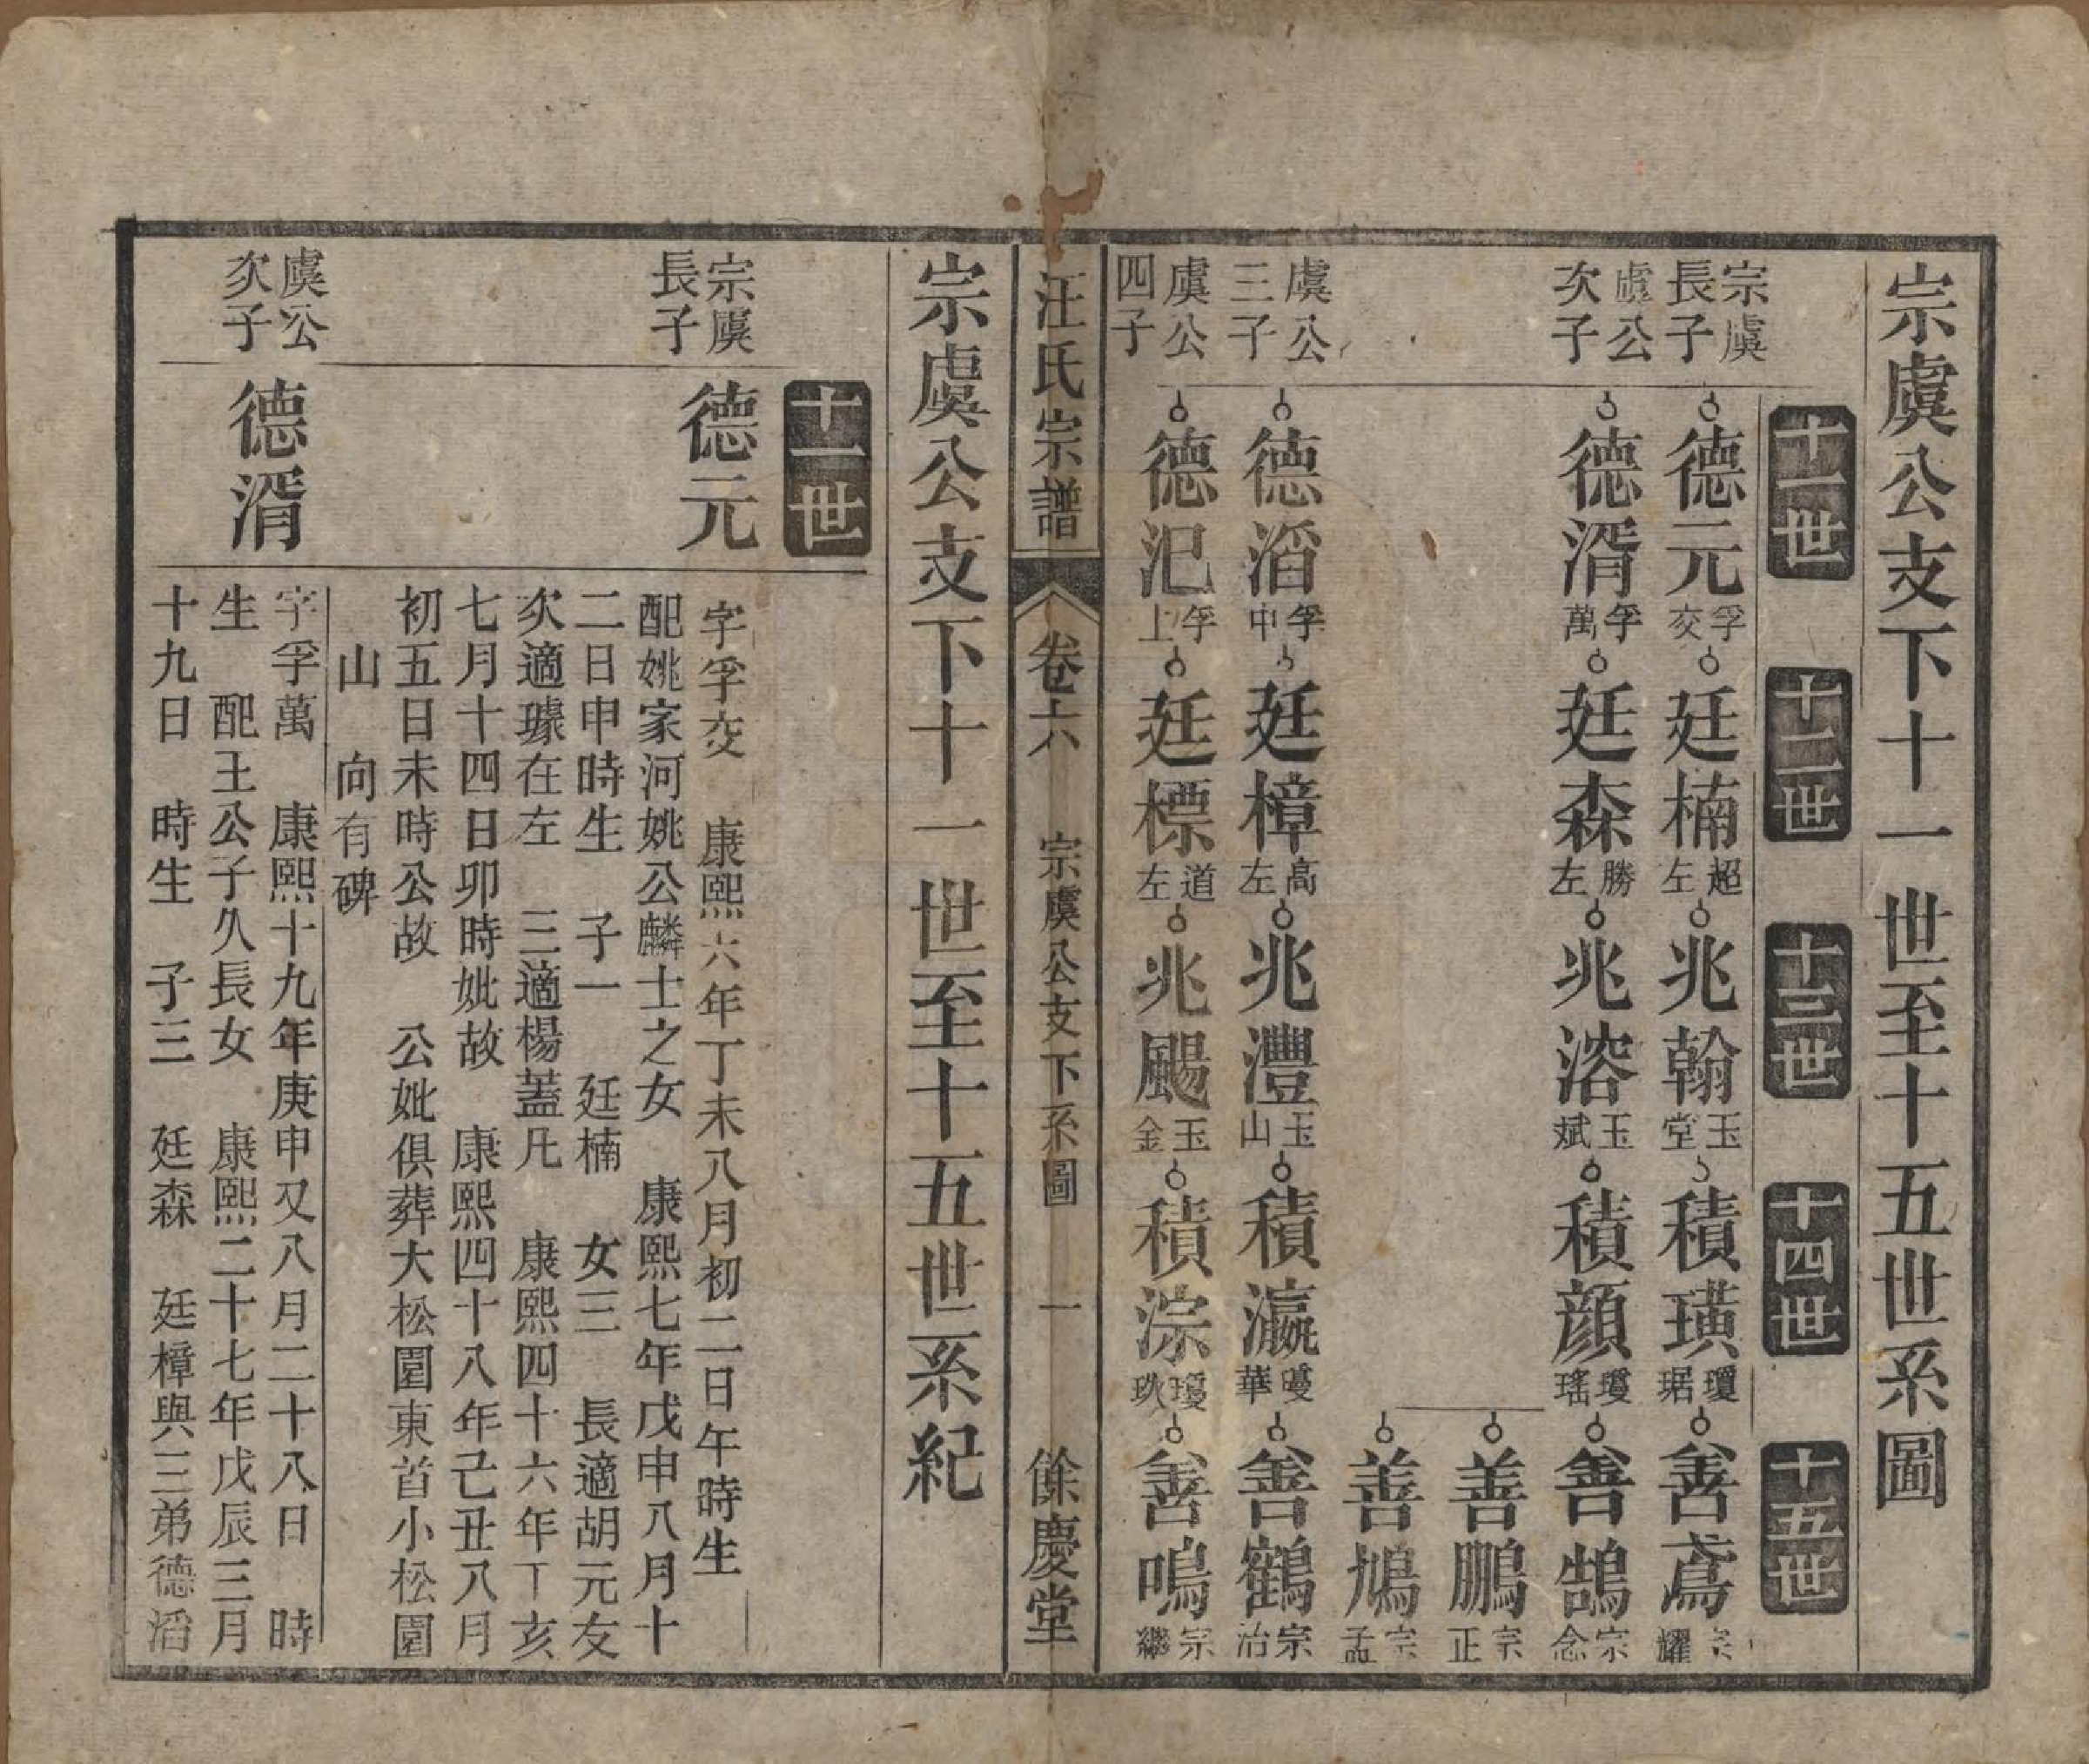 宗虞公支下十一世至十五世系圖
十一世 十二世 十三世 十四世 十五世
宗虞長子 德元孚交 廷楠超左 兆翰玉堂 積璜瓊琚 善鳶宗耀
虞公次子 德湑孚萬 廷森勝左 兆溶玉斌 積顔瓊瑤 善鵠宗念
善鵬宗正
善鳩宗孟
虞公三子 德滔孚中 廷樟高左 兆灃玉山 積瀛瓊華 善鶴宗治
虞公四子 德汜孚上 廷標道左 兆颺玉金 積淙瓊玖 善鳴宗繼
汪氏宗譜 卷六 宗虞公支下系圖 一 餘慶堂
宗虞公支下十一世至十五世系紀
十一世
宗虞長子 德元
字孚交 康熙六年丁未八月初二日午時生
配姚家河姚公麟士之女 康熙七年戊申八月十
二日申時生 子一 廷楠 女三 長適胡元友
次適璩在左 三適楊蓋凡 康熙四十六年丁亥
七月十四日卯時妣故 康熙四十八年己丑八月
初五日未時公故 公妣俱葬大松園東首小松園
山 向有碑
虞公次子 德湑
字孚萬 康熙十九年庚申又八月二十八日 時
生 配王公子久長女 康熙二十七年戊辰三月
十九日 時生 子三 廷森 廷樟與三弟德滔